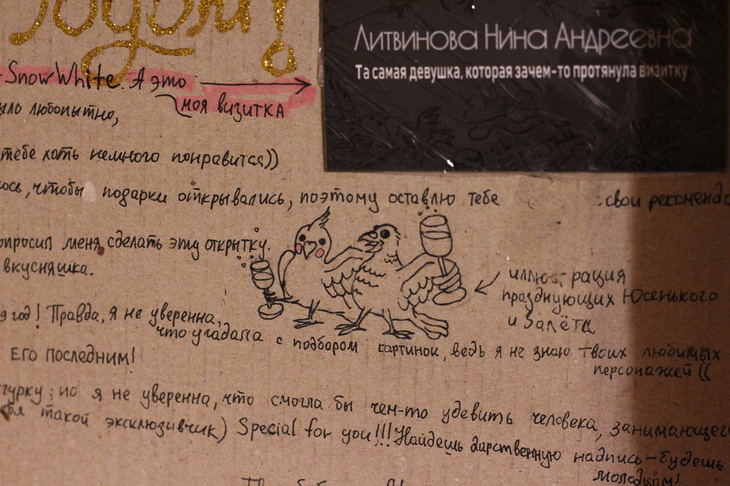 годом!
ЛИТВИНОВА НИНА АНДРЕЕВНА
Та самая девушка, которая зачем-то протянула визитку
SnowWhite. А это
моя визитка
ыло любопытно,
тебе хоть немного понравится))
ось, чтобы подарки открывались, поэтому оставлю тебе свои рекоменда
опросил меня сделать эту открытку.
вкусняшка.
иллюстрация
празднующих Юсенького
и Залёта
год! Правда, я не уверенна,
что угадала с подбором картинок, ведь я не знаю твоих любимых
персонажей ((
Его последним!
гурку; но я не уверенна, что смогла бы чем-то удевить человека, занимающего
бя такой эксклюзивчик) Special for you!!! Найдешь дарственную надпись - будешь
молодцом!